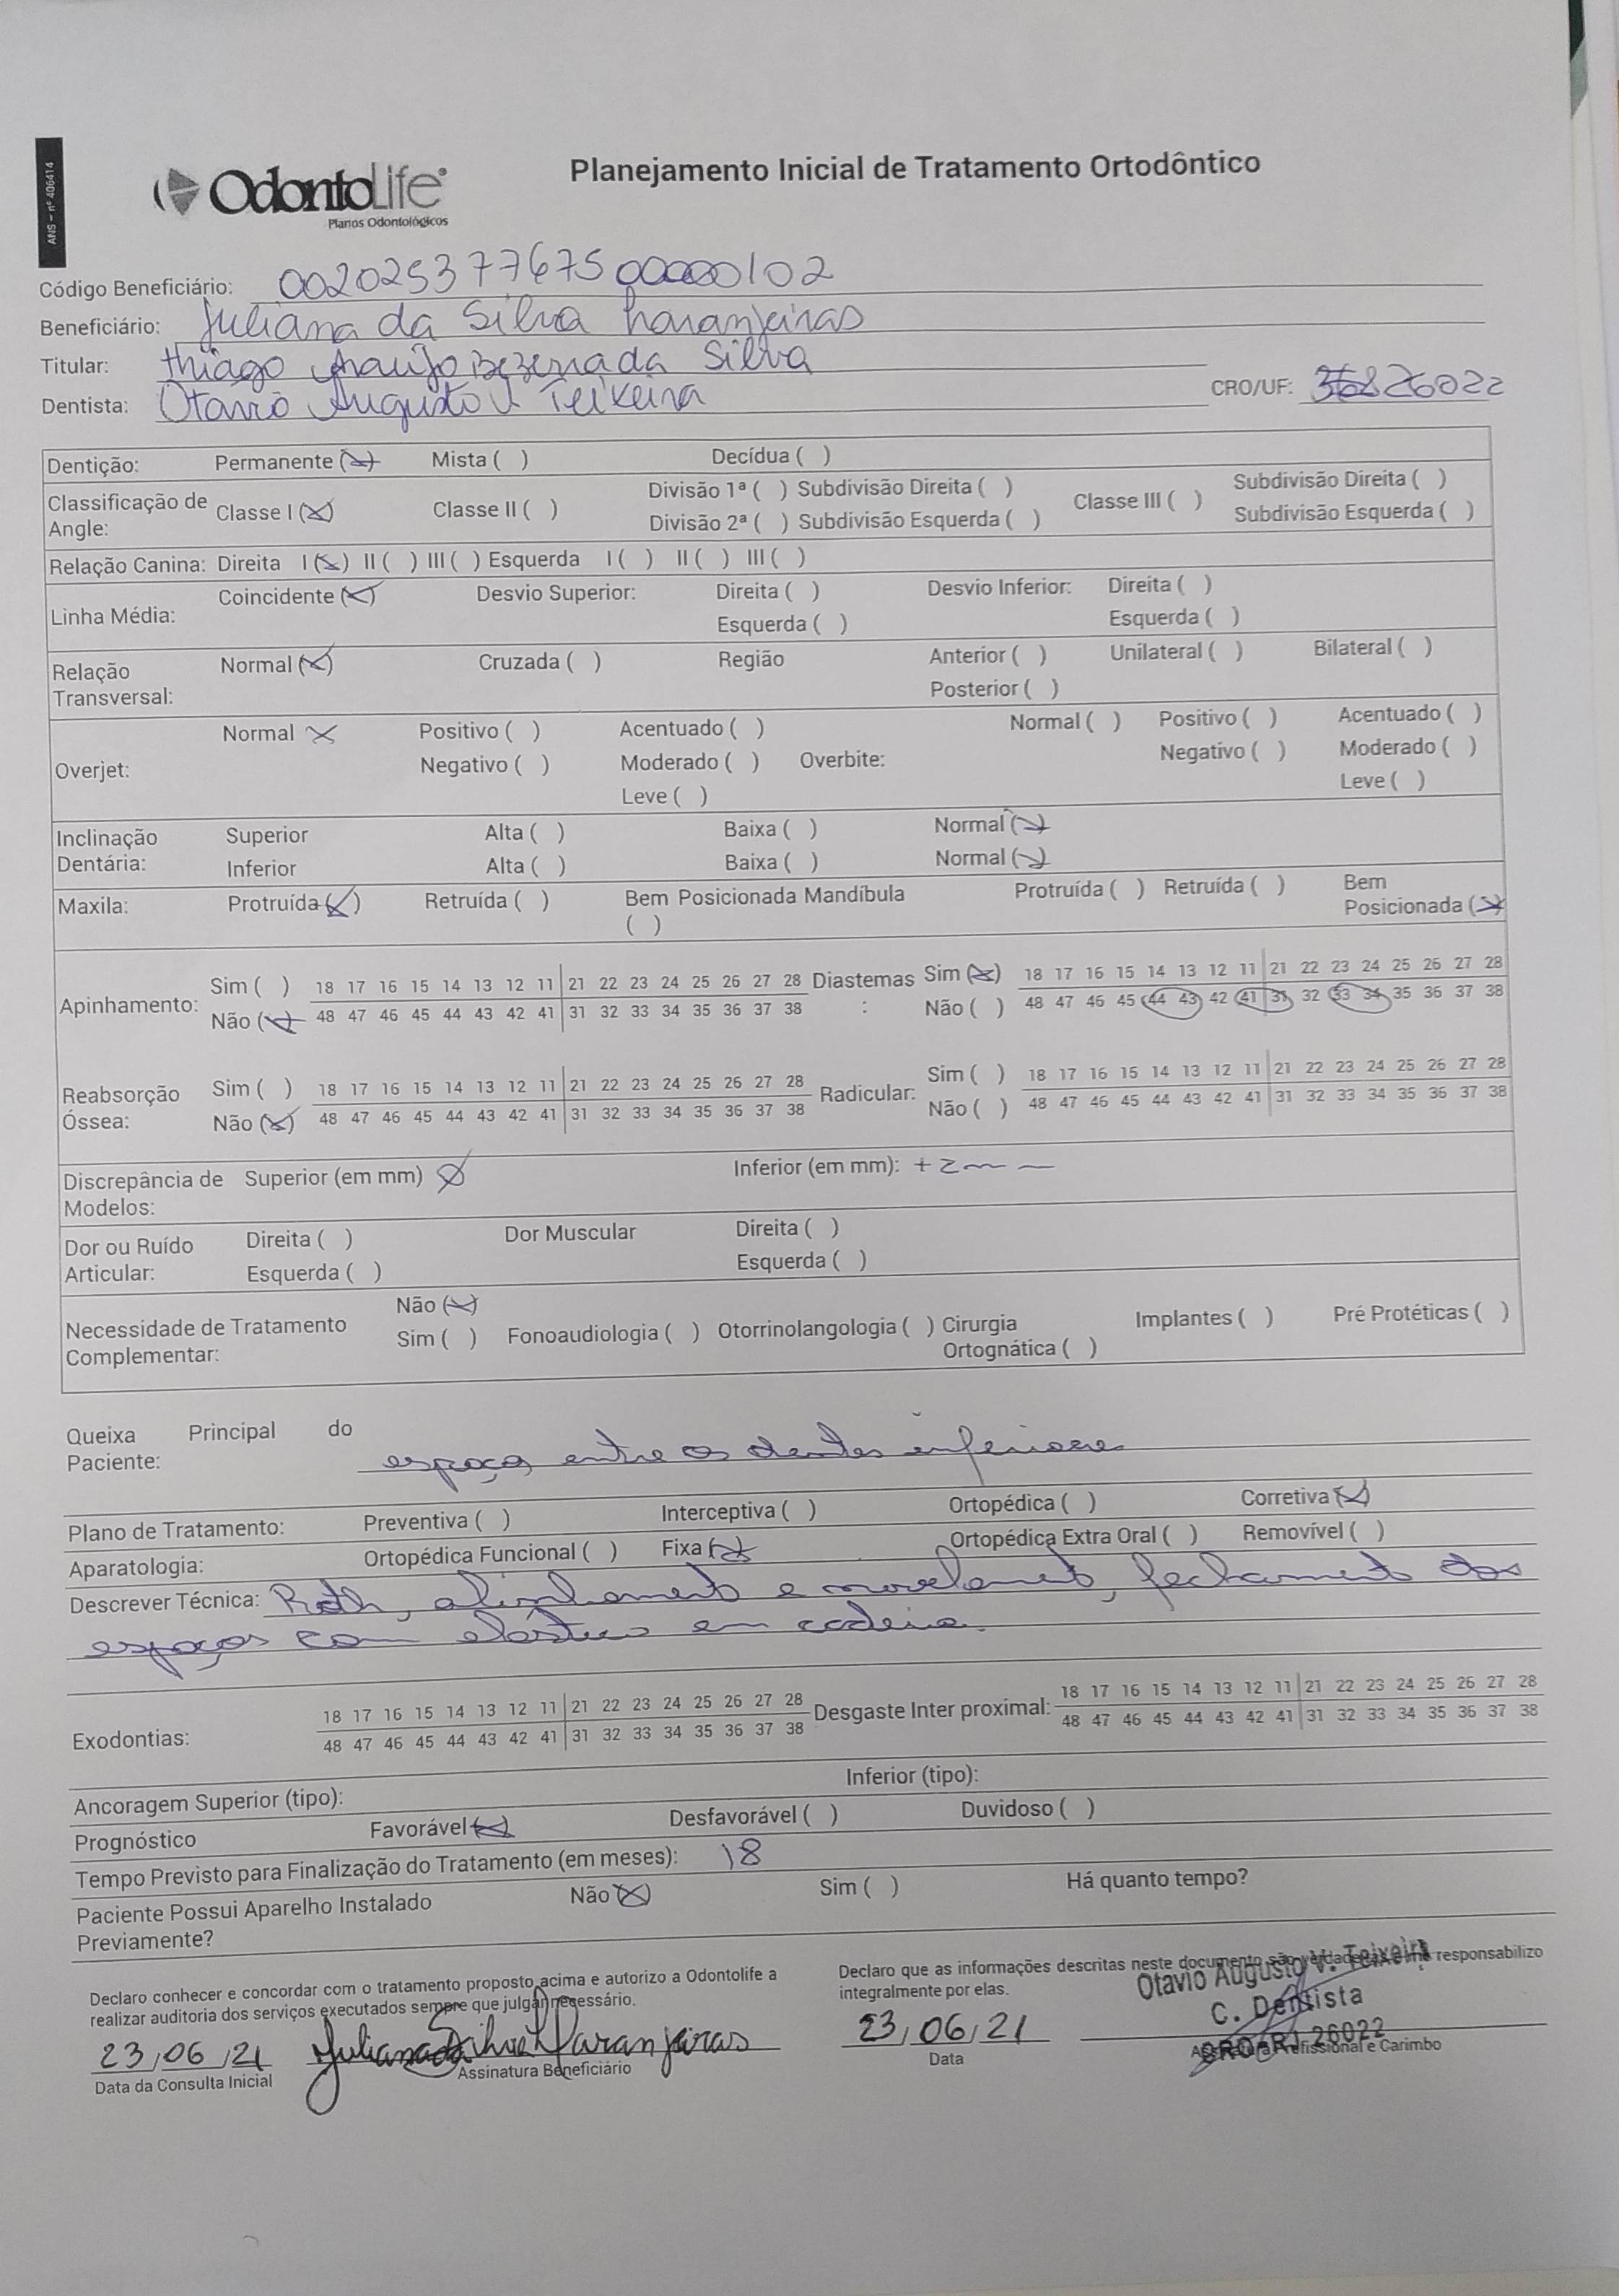 ANS - nº 406414
OdontoLife
Planos Odontológicos
Planejamento Inicial de Tratamento Ortodôntico
Código Beneficiário: 00202537767500000102
Beneficiário: Juliana da Silva Laranjeiras
Titular: Thiago Araújo Bezerra da Silva
Dentista: Otavio Augusto V Teixeira CRO/UF: 26022
Dentição: Permanente (x) Mista ( ) Decídua ( )
Classificação de Angle: Classe I (x) Classe II ( ) Divisão 1ª ( ) Subdivisão Direita ( ) Classe III ( ) Subdivisão Direita ( )
Divisão 2ª ( ) Subdivisão Esquerda ( ) Subdivisão Esquerda ( )
Relação Canina: Direita I (x) II ( ) III ( ) Esquerda I ( ) II ( ) III ( )
Linha Média: Coincidente (x) Desvio Superior: Direita ( ) Desvio Inferior: Direita ( )
Esquerda ( ) Esquerda ( )
Relação Transversal: Normal (x) Cruzada ( ) Região Anterior ( ) Unilateral ( ) Bilateral ( )
Posterior ( )
Overjet: Normal x Positivo ( ) Acentuado ( ) Overbite: Normal ( ) Positivo ( ) Acentuado ( )
Negativo ( ) Moderado ( ) Negativo ( ) Moderado ( )
Leve ( ) Leve ( )
Inclinação Dentária: Superior Alta ( ) Baixa ( ) Normal (x)
Inferior Alta ( ) Baixa ( ) Normal (x)
Maxila: Protruída (x) Retruída ( ) Bem Posicionada ( ) Mandíbula Protruída ( ) Retruída ( ) Bem Posicionada (x)
Apinhamento: Sim ( ) 18 17 16 15 14 13 12 11 21 22 23 24 25 26 27 28 Diastemas : Sim (x) 18 17 16 15 14 13 12 11 21 22 23 24 25 26 27 28
Não (x) 48 47 46 45 44 43 42 41 31 32 33 34 35 36 37 38 Não ( ) 48 47 46 45 44 43 42 41 31 32 33 34 35 36 37 38
Reabsorção Óssea: Sim ( ) 18 17 16 15 14 13 12 11 21 22 23 24 25 26 27 28 Radicular: Sim ( ) 18 17 16 15 14 13 12 11 21 22 23 24 25 26 27 28
Não (x) 48 47 46 45 44 43 42 41 31 32 33 34 35 36 37 38 Não ( ) 48 47 46 45 44 43 42 41 31 32 33 34 35 36 37 38
Discrepância de Modelos: Superior (em mm) Ø Inferior (em mm): + 2mm
Dor ou Ruído Articular: Direita ( ) Dor Muscular Direita ( )
Esquerda ( ) Esquerda ( )
Necessidade de Tratamento Complementar: Não (x)
Sim ( ) Fonoaudiologia ( ) Otorrinolangologia ( ) Cirurgia Ortognática ( ) Implantes ( ) Pré Protéticas ( )
Queixa Principal do Paciente: espaços entre os dentes inferiores
Plano de Tratamento: Preventiva ( ) Interceptiva ( ) Ortopédica ( ) Corretiva (x)
Aparatologia: Ortopédica Funcional ( ) Fixa (x) Ortopédica Extra Oral ( ) Removível ( )
Descrever Técnica: Roth, alinhamento e nivelamento, fechamento dos
espaços com elástico em cadeia.
Exodontias: 18 17 16 15 14 13 12 11 21 22 23 24 25 26 27 28 Desgaste Inter proximal: 18 17 16 15 14 13 12 11 21 22 23 24 25 26 27 28
48 47 46 45 44 43 42 41 31 32 33 34 35 36 37 38 48 47 46 45 44 43 42 41 31 32 33 34 35 36 37 38
Ancoragem Superior (tipo): Inferior (tipo):
Prognóstico Favorável (x) Desfavorável ( ) Duvidoso ( )
Tempo Previsto para Finalização do Tratamento (em meses): 18
Paciente Possui Aparelho Instalado Previamente? Não (x) Sim ( ) Há quanto tempo?
Declaro conhecer e concordar com o tratamento proposto acima e autorizo a Odontolife a
realizar auditoria dos serviços executados sempre que julgar necessário.
23/06/21 Juliana da Silva Laranjeiras
Data da Consulta Inicial Assinatura Beneficiário
Declaro que as informações descritas neste documento são verdadeiras e me responsabilizo
integralmente por elas.
23/06/21
Data
Otavio Augusto V. Teixeira
C. Dentista
CRO-RJ 26022
Assinatura Profissional e Carimbo